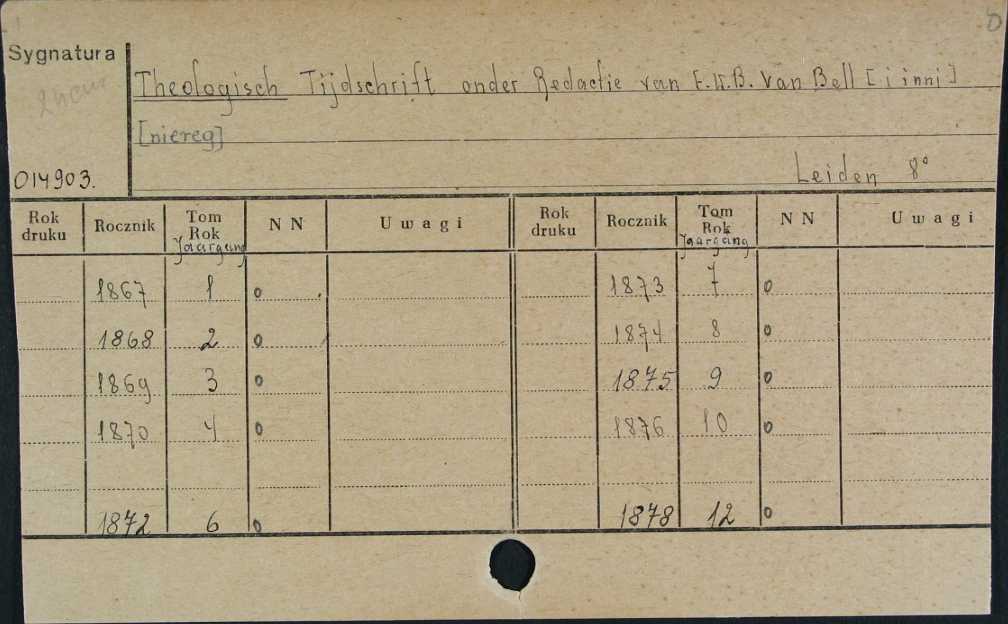 D
Sygnatura
Theologisch Tijdschrift onder Redactie van F.W.B. van Bell [i inni]
[niereg]
Leiden 8°
014903.
Rok druku Rocznik Tom Rok Jaargang NN Uwagi Rok druku Rocznik Tom Rok Jaargang NN Uwagi
1867 1 o 1873 7 o
1868 2 o 1874 8 o
1869 3 o 1875 9 o
1870 4 o 1876 10 o
1872 6 o 1878 12 o